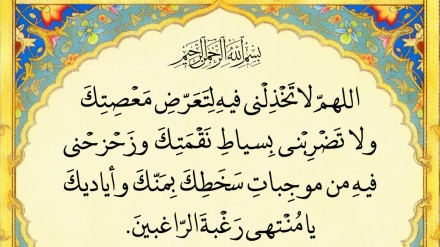 بِسْمِ اللهِ الرَّحْمٰنِ الرَّحِيمِ
اللهمّ لا تَخْذِلْنی فیهِ لِتَعَرّضِ مَعْصِیَتِكَ
ولا تَضْرِبْنی بِسیاطِ نَقْمَتِكَ وزَحْزحْنی
فیهِ من موجِباتِ سَخَطِكَ بِمَنّكَ وأیادیكَ
یا مُنْتهى رَغْبةَ الرّاغبینَ.